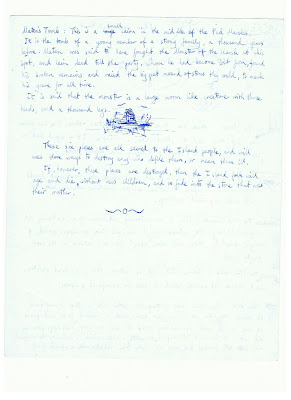 Maten's Tomb: This is a small cairn in the middle of the Red Marshes.
It is the tomb of a young member of a strong family, a thousand years
before. Maten was said to have fought the Monster of the marsh at this
spot, and lain dead till the party, whom he had become lost from, found
his broken remains and raised the big peat mound of stones they could, to mark
his grave for all time.
It is said that the monster is a large worm like creature with three
heads, and a thousand legs.
These six places are all sacred to the Island people, and will
use stone ways to destroy any who defile them, or mean them ill.
If, however, these places are destroyed, then the Island folk will
age and die, without any children, and so fade into the stone that was
their mother.